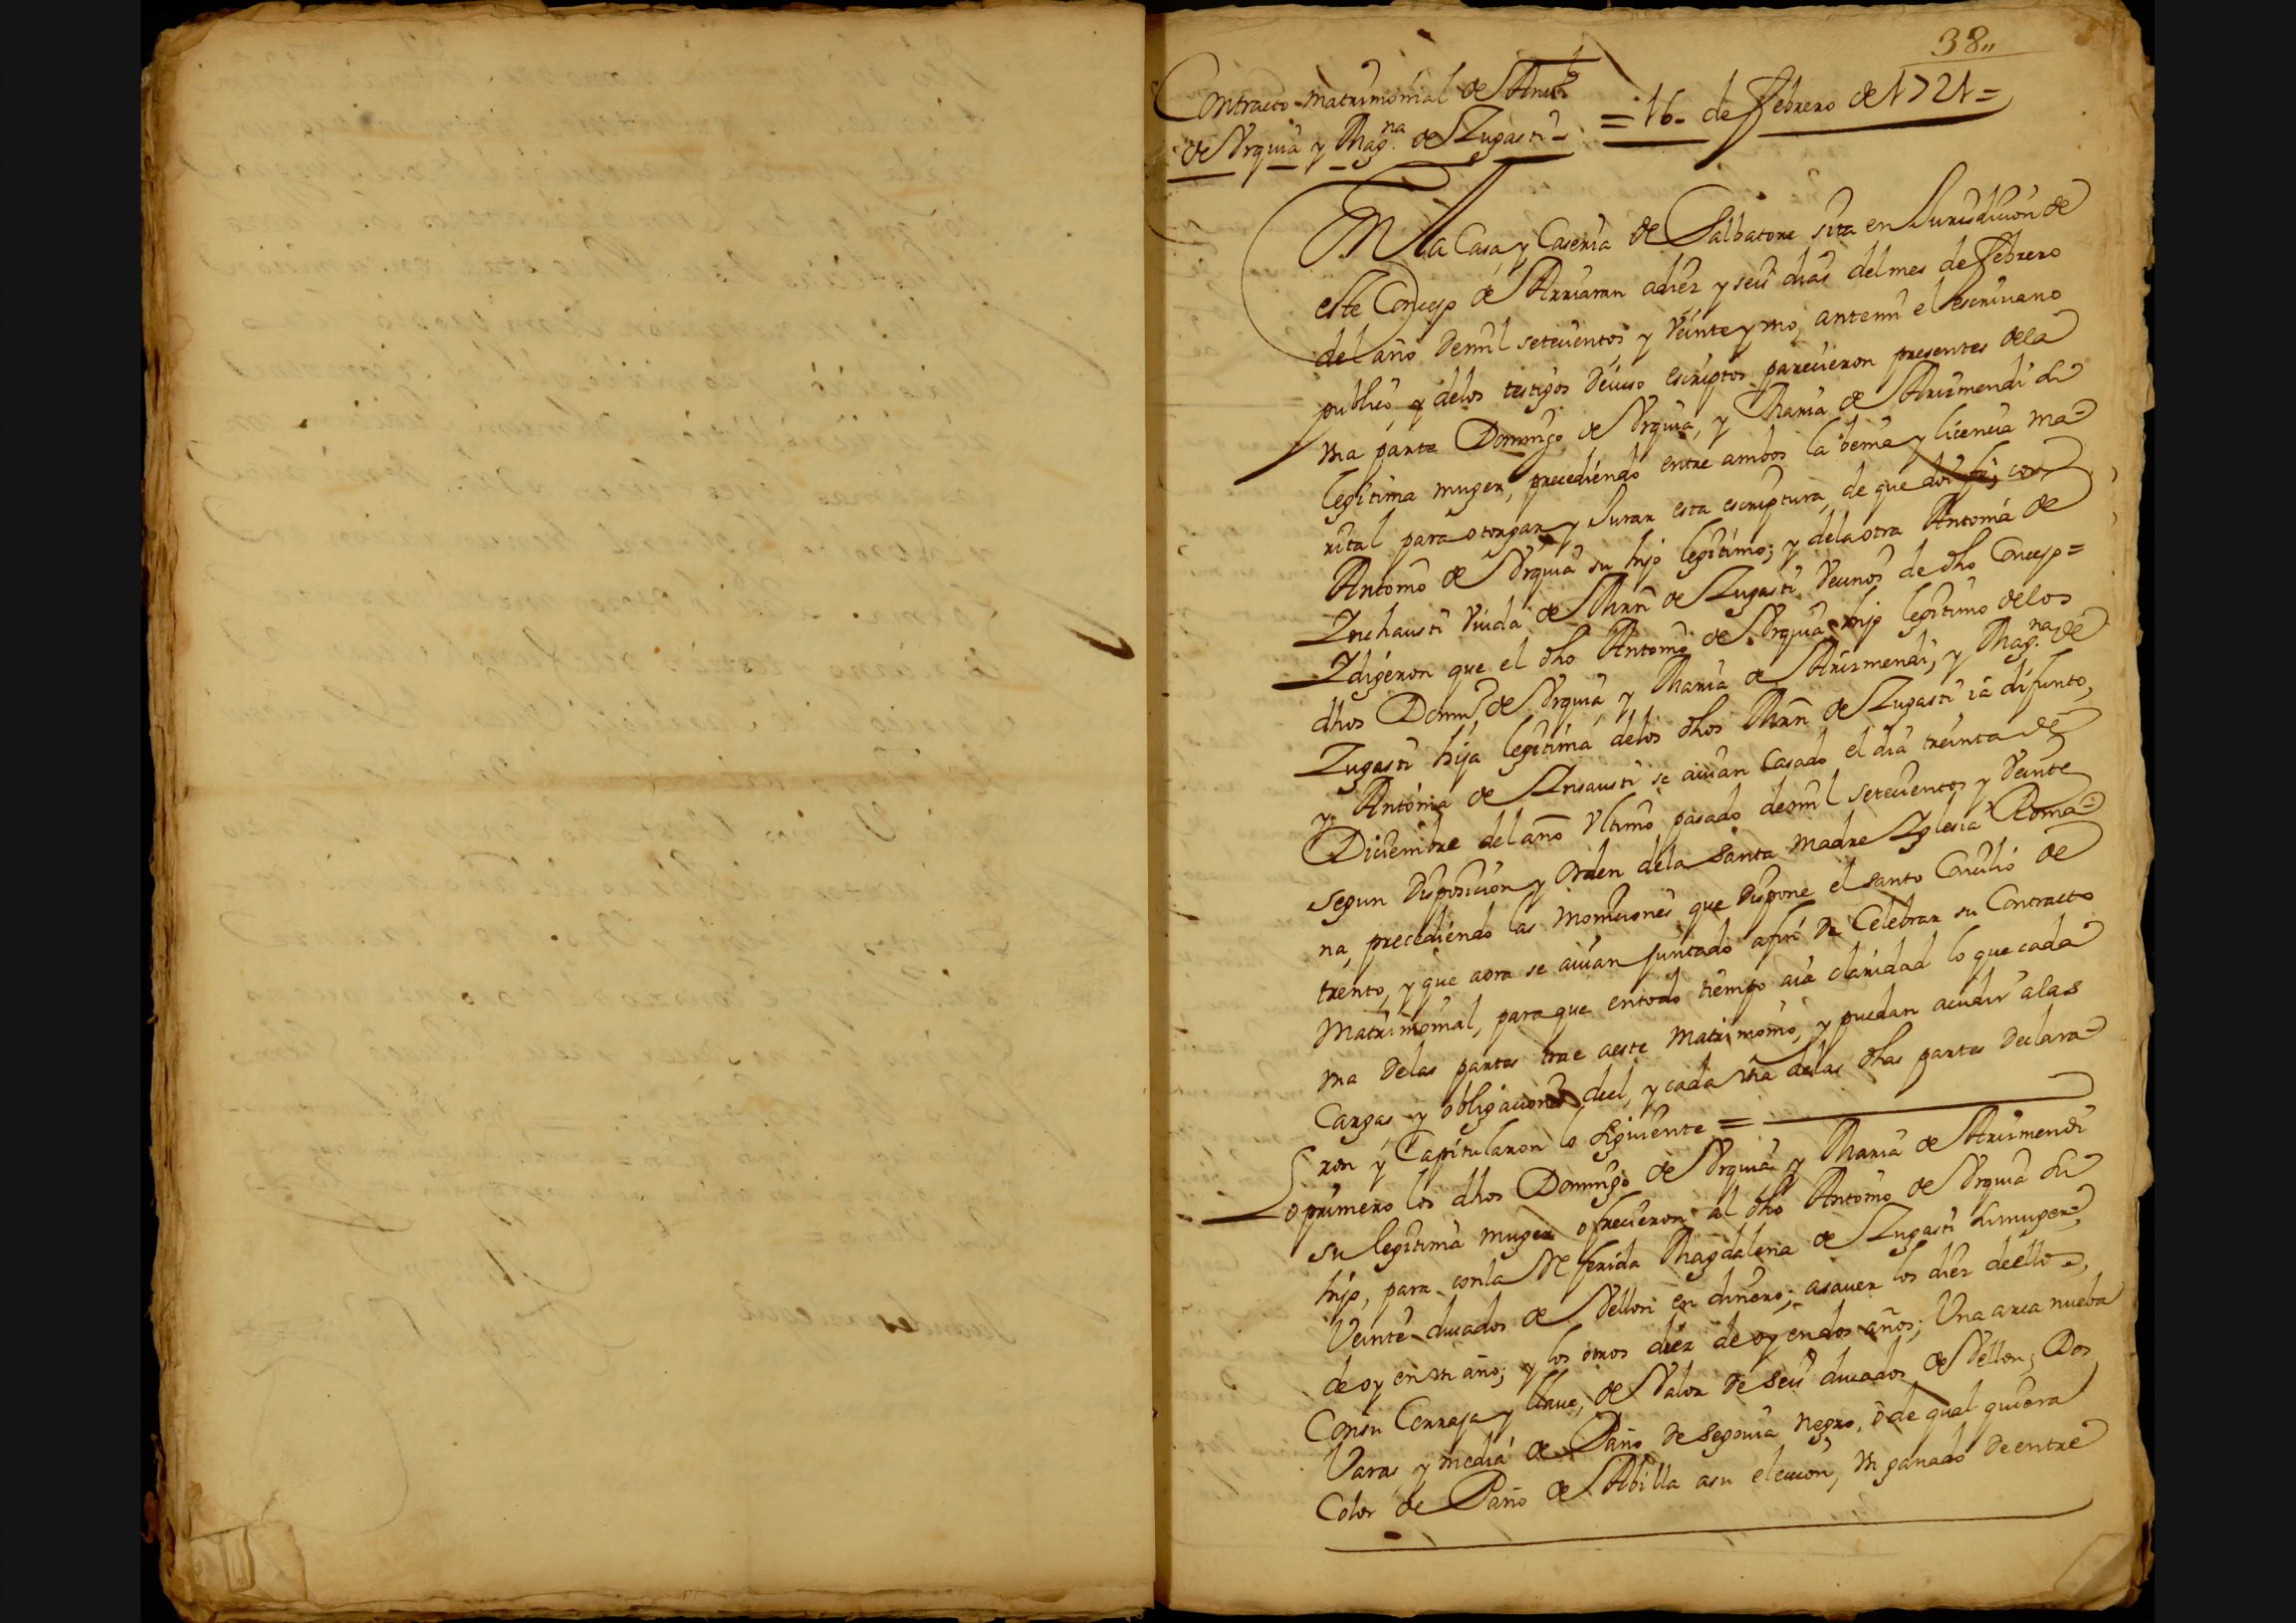 38,,
Contracto matrimonial de Anto
de Vrquia y Magna de Zugasti = 16 de febrero de 1721 =
En la Casa y Caseria de Salbatore sita en Jurisdicion de
este Concejo de Arriaran a diez y seis dias del mes de febrero
del año de mil setecientos y Veinte y vno, ante mi el escrivano
publico y delos testigos deiuso escriptos parecieron presentes dela
vna parte Domingo de Vrquia, y Maria de Arismendi su
legitima muger, precediendo entre ambos la benia y licencia ma-
rital para otorgar y Jurar esta escriptura, de que doi fe, con
Antonio de Vrquia su hijo legitimo; y dela otra Antonia de
Inchausti Viuda de Mrñ de Zugasti Vecinos de dho Concejo =
I digeron que el dho Antonio de Vrquia hijo legitimo delos
dhos Domgo de Vrquia, y Maria de Arismendi, y Magna de
Zugasti hija legitima delos dhos Mrñ de Zugasti ia difunto,
y Antonia de Insausti se auian Casado el dia treinta de
Diciembre del año vltimo pasado de mil setecientos y Veinte
segun disposicion y orden dela santa madre Iglesia Roma-
na, precediendo las moniciones que dispone el santo Concilio de
trento, y que aora se auian juntado afin de Celebrar su Contracto
Matrimonial, para que entodo tiempo aia claridad lo que cada
vna delas partes trae aeste Matrimonio, y puedan acudir alas
Cargas y obligaciones deel, y cada vna delas dhas partes declara-
ron y Capitularon lo siguiente =
Lo primero los dhos Domingo de Vrquia y Maria de Arismendi
su legitima muger ofrecieron al dho Antonio de Vrquia su
hijo, para conla Referida Magdalena de Zugasti su muger,
Veinte ducados de Vellon en dinero; asauer los diez deellos,
de oy en vn año; y los otros diez de oy endos años; Vna arca nueba
Consu Cerraja y llaue, de Valor de seis ducados de Vellon; Dos
Varas y media de Paño de segouia negro, ò de qual quiera
Color de Paño de Abilla asu eleccion, vn ganado de entre